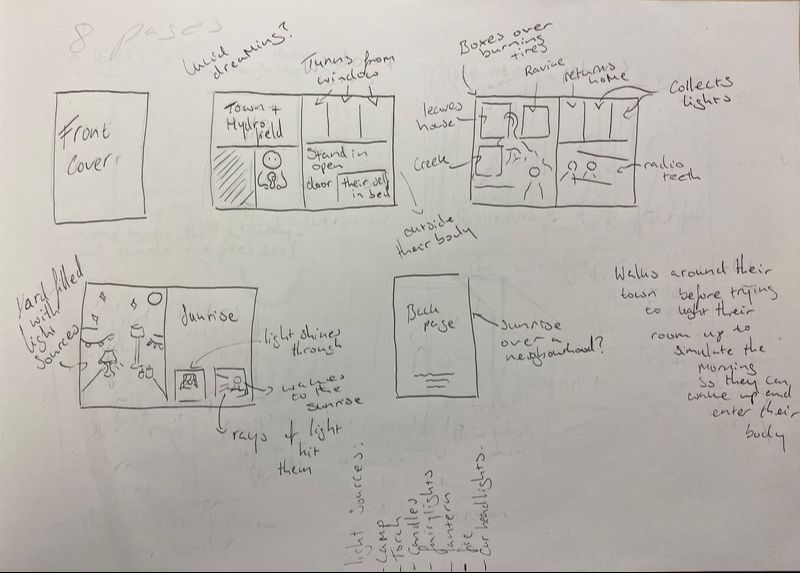 8 pages
lucid
dreaming?
Turns from
window
Boxes over
burning
tires
Ravine
returns
home
Collects
lights
Front
Cover
Town +
Hydro field
Stand in
open
door
their self
in bed
outside
their body
leaves
house
Creek
radio
teeth
Yard filled
with
light
sources
Sunrise
light shines
through
wakes
to the
sunrise
rays of light
hit
them
Back
page
Sunrise
over a
neighbourhood?
Walks around their
town before trying
to light their
room up to
simulate the
morning
so they can
wake up and
enter their
body
light sources:
- Lamp
- Torch
- Candles
- fairylights
- lantern
- fire
- Car headlights.